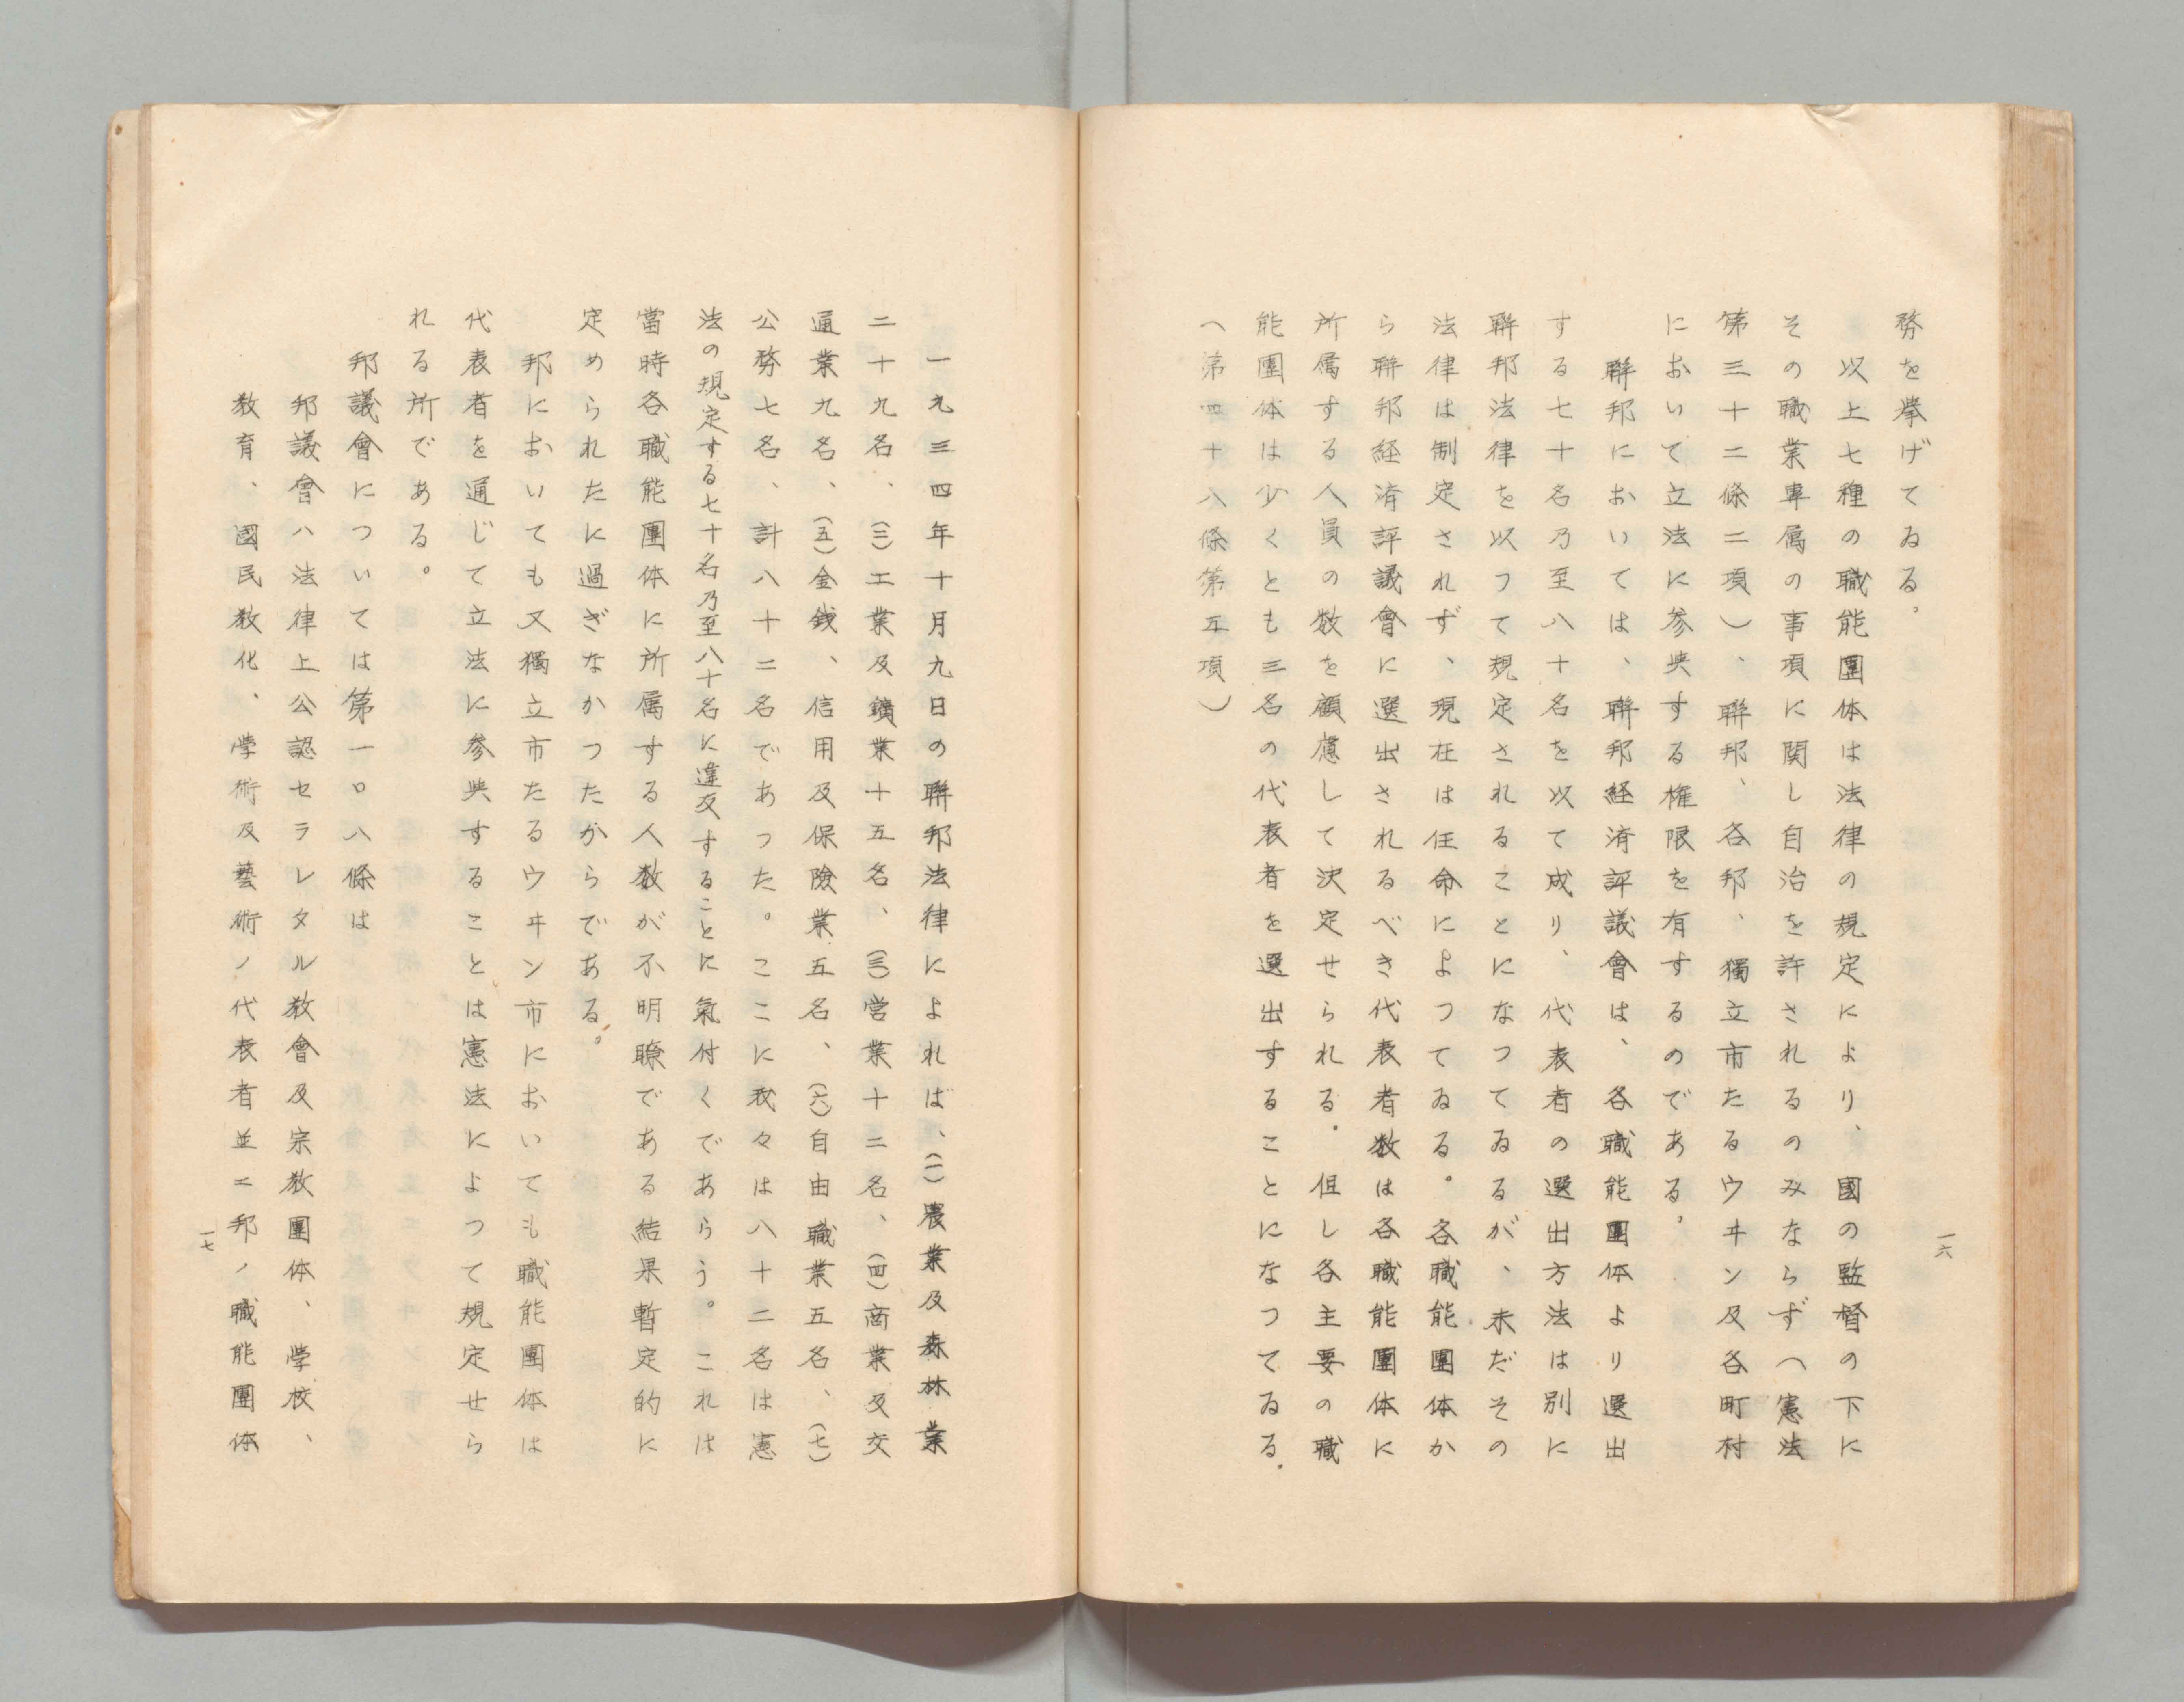 務を挙げてゐる。
以上七種の職能團体は法律の規定により、國の監督の下に
その職業専属の事項に関し自治を許されるのみならず（憲法
第三十二條二項）、聯邦、各邦、獨立市たるウヰン及各町村
において立法に参与する権限を有するのである。
聯邦においては、聯邦経済評議會は、各職能團体より選出
する七十名乃至八十名を以て成り、代表者の選出方法は別に
聯邦法律を以つて規定されることになつてゐるが、未だその
法律は制定されず、現在は任命によつてゐる。各職能團体か
ら聯邦経済評議會に選出されるべき代表者数は各職能團体に
所属する人員の数を顧慮して決定せられる。但し各主要の職
能團体は少くとも三名の代表者を選出することになつてゐる。
（第四十八條第五項）
一六
一九三四年十月九日の聯邦法律によれば、（一）農業及森林業
二十九名、（二）工業及鑛業十五名、（三）営業十二名、（四）商業及交
通業九名、（五）金銭、信用及保險業五名、（六）自由職業五名、（七）
公務七名、計八十二名であつた。ここに我々は八十二名は憲
法の規定する七十名乃至八十名に違反することに氣付くであらう。これは
當時各職能團体に所属する人数が不明瞭である結果暫定的に
定められたに過ぎなかつたからである。
邦においても又獨立市たるウヰン市においても職能團体は
代表者を通じて立法に参与することは憲法によつて規定せら
れる所である。
邦議會については第一〇八條は
邦議會ハ法律上公認セラレタル教會及宗教團体、學校、
教育、國民教化、學術及藝術ノ代表者並ニ邦ノ職能團体
一七